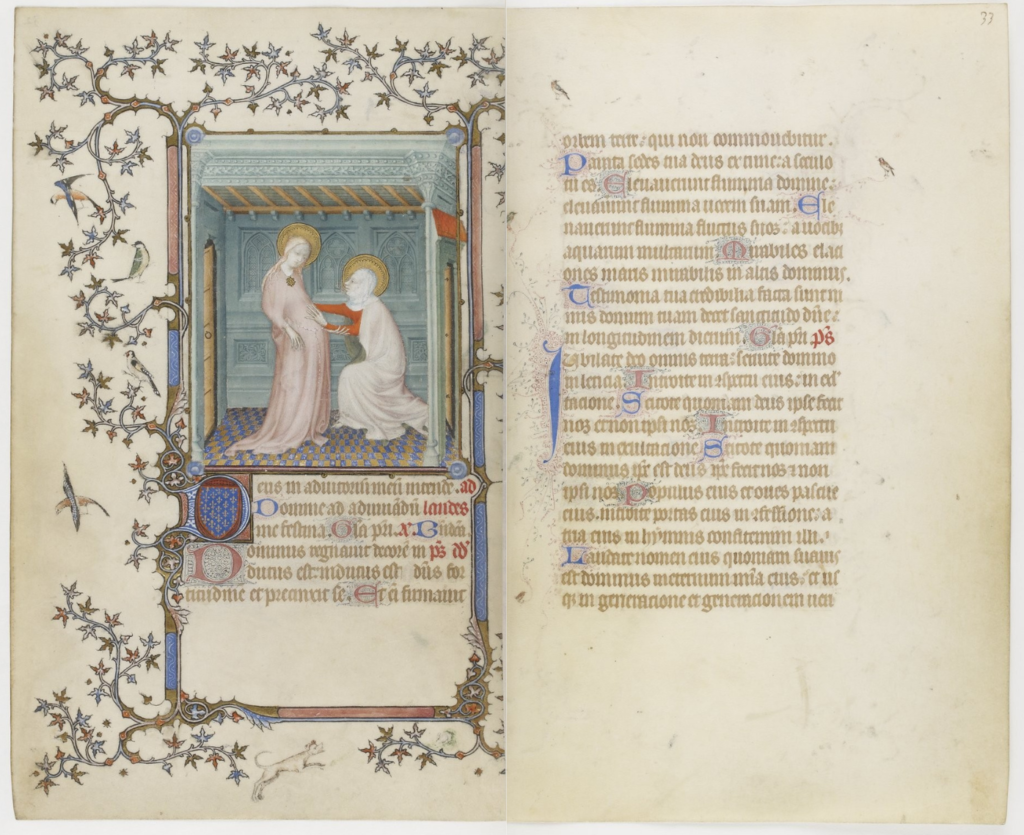 Deus in adiutoriū meū intende. ad
Domine ad adiuuādū laudes
me festina. Gla pri.
Dominus regnauit decorē in ps dd
dutus est: indutus est dn̄s for
titudine et precinxit se. Et eī firmauit
33
orbem terre: qui non commouebitur.
Parata sedes tua deus ex tunc: a seculo
tu es. Eleuauerunt flumina domine:
eleuauerunt flumina uocem suam. Ele
uauerunt flumina fluctus suos: a uocibꝫ
aquarum multarum. Mirabiles elaci
ones maris mirabilis in altis dominus.
Testimonia tua credibilia facta sunt ni
mis domum tuam decet sanctitudo dn̄e:
in longitudinem dierum. Gla pri ps
Iubilate deo omnis terra: seruite domino
in leticia. Introite in ꝯspectu eius: in exul
tacione. Scitote quoniam deus ipse fecit
nos et non ipsi nos. Introite in ꝯspectu
eius in exultacione. Scitote quoniam
dominus ip̄e est deus ip̄e fecit nos ⁊ non
ipsi nos. Populus eius et oues pascue
eius. introite portas eius in ꝯfessione: a
tria eius in hymnis confitemini illi.
Laudate nomen eius quoniam suauis
est dominus in eternum mīa eius: et us
qꝫ in generacione et generacionem ueri